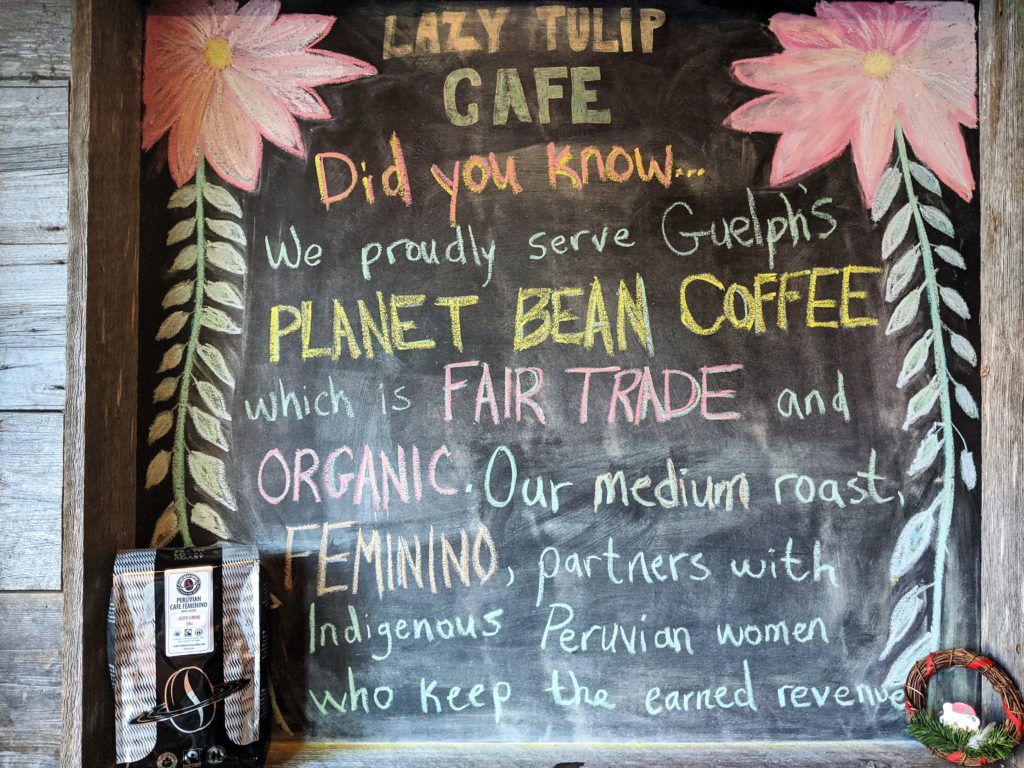 LAZY TULIP
CAFE
Did you know...
We proudly serve Guelph's
PLANET BEAN COFFEE
which is FAIR TRADE and
ORGANIC. Our medium roast,
FEMININO, partners with
Indigenous Peruvian women
who keep the earned revenue
PERUVIAN
CAFE FEMENINO